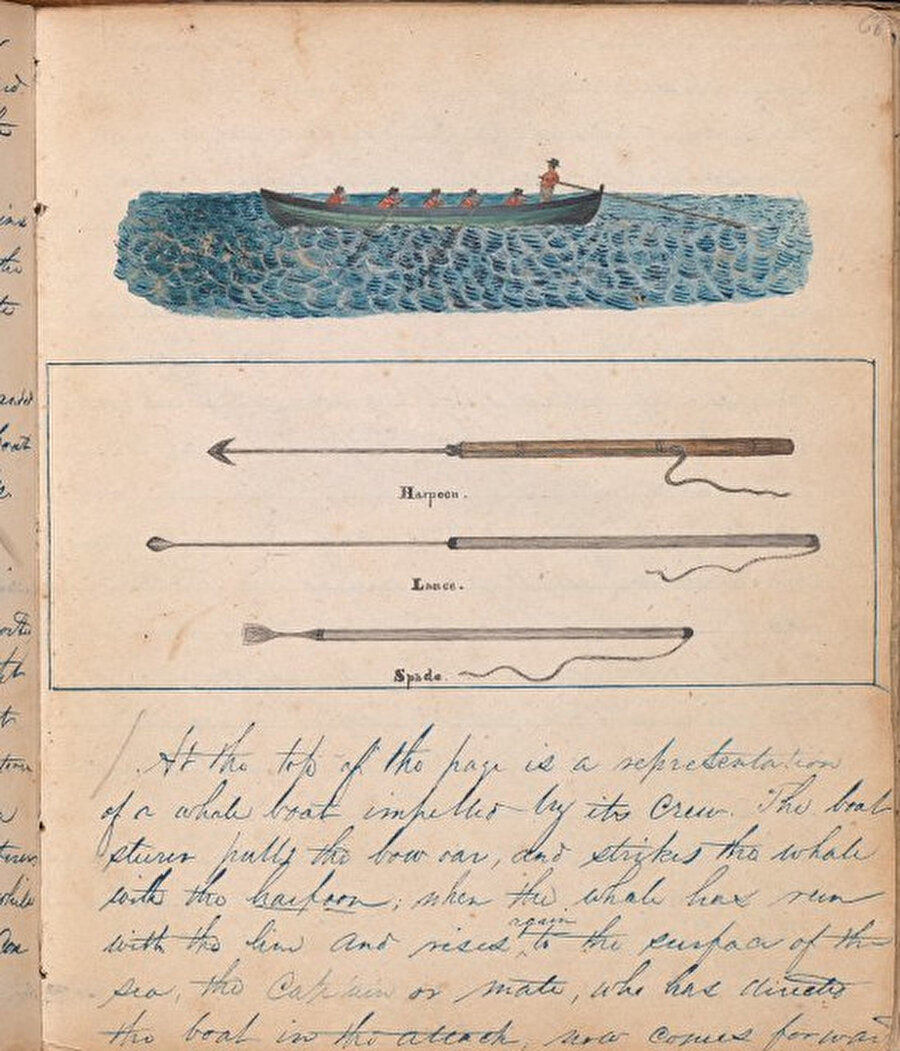 Harpoon.
Lance.
Spade.
At the top of the page is a representation
of a whale boat impelled by its crew. The boat
steerer pulls the bow oar, and strikes the whale
with the harpoon; when the whale has run
with the line and rises again to the surface of the
sea, the Captain or mate, who has directed
the boat in the attack, now comes forwar